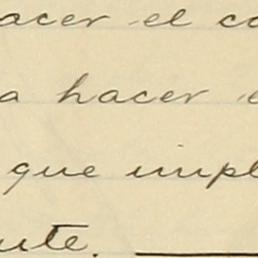 hacer el co
a hacer e
que impl
ute.